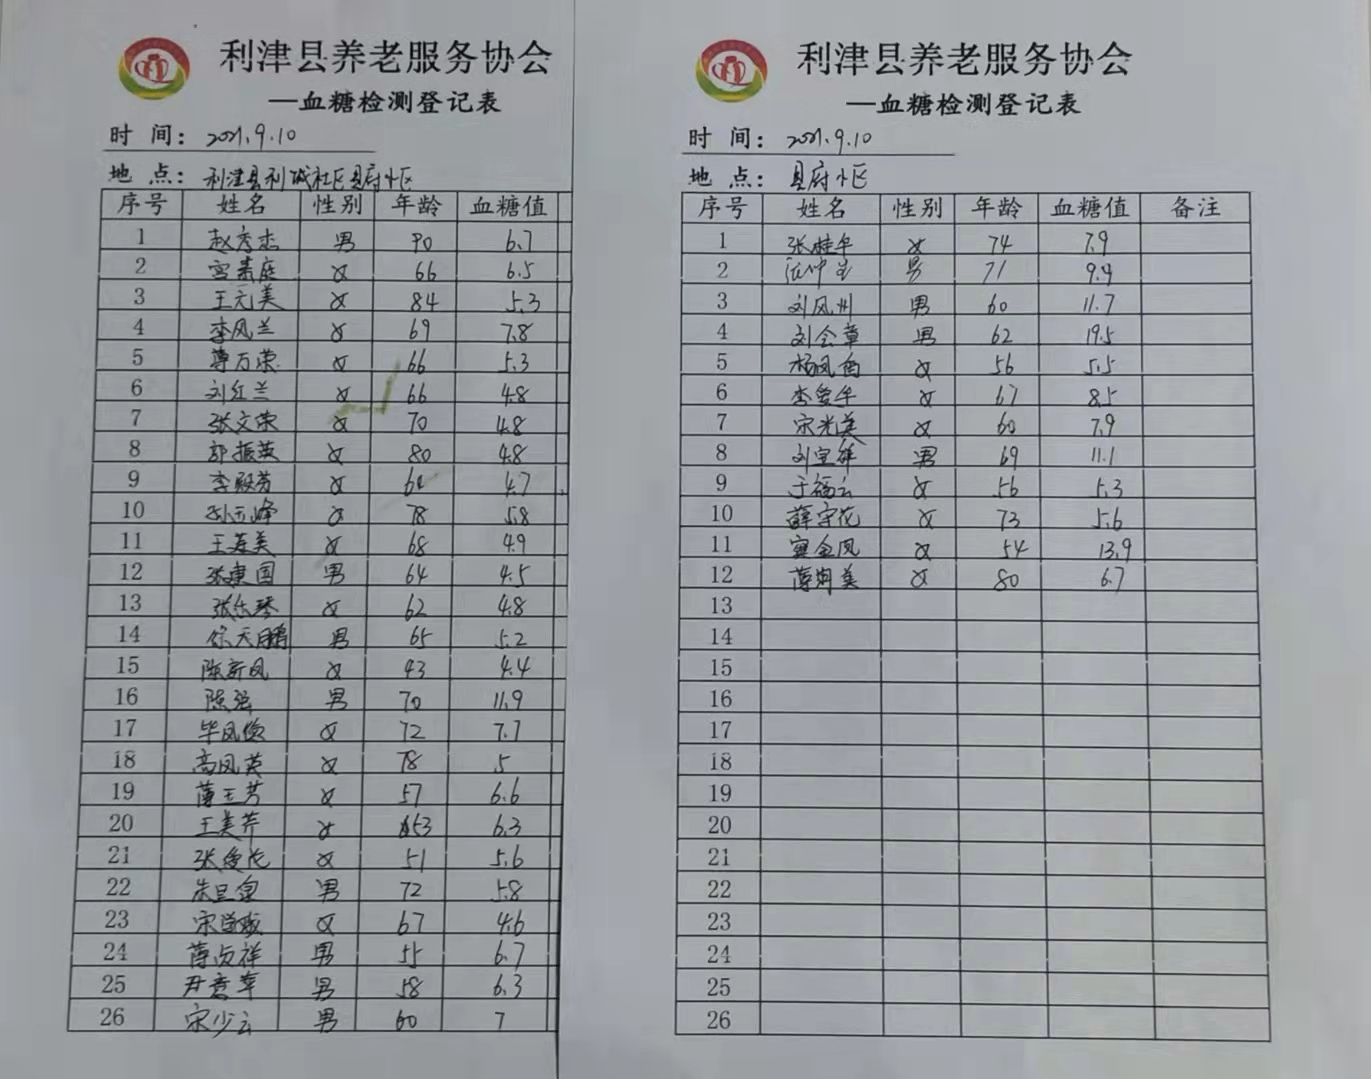 利津县养老服务协会
—血糖检测登记表
时 间: 2021.9.10
地 点: 利津县利城社区县府小区
序号 姓名 性别 年龄 血糖值
1 赵秀杰 男 70 6.7
2 宫素庭 女 66 6.5
3 王元美 女 84 5.3
4 李风兰 女 69 7.8
5 薄万荣 女 66 5.3
6 刘红兰 女 66 4.8
7 张文荣 女 70 4.8
8 郭振英 女 80 4.8
9 李殿芳 女 4.7
10 孙玉峰 女 78 5.8
11 王英美 女 68 4.9
12 张建国 男 64 4.5
13 张乐琴 女 62 4.8
14 徐天鹏 男 65 5.2
15 陈新凤 女 43 4.4
16 陈强 男 70 11.9
17 毕凤俊 女 72 7.7
18 高凤英 女 78 5
19 薄玉芳 女 57 6.6
20 王美芹 女 53 6.3
21 张爱花 女 51 5.6
22 朱 男 72 5.8
23 宋 女 67 4.6
24 薄贞祥 男 55 6.7
25 尹意军 男 58 6.3
26 宋少云 男 60 7
利津县养老服务协会
—血糖检测登记表
时 间: 2021.9.10
地 点: 县府小区
序号 姓名 性别 年龄 血糖值 备注
1 张桂华 女 74 7.9
2 男 71 9.9
3 刘风州 男 60 11.7
4 刘会章 男 62 19.5
5 杨凤香 女 56 5.5
6 李爱华 女 67 8.5
7 宋光美 女 60 7.9
8 刘宝祥 男 69 11.1
9 于福云 女 56 5.3
10 薛守花 女 73 5.6
11 窦金凤 女 54 13.9
12 薄美 女 80 6.7
13
14
15
16
17
18
19
20
21
22
23
24
25
26